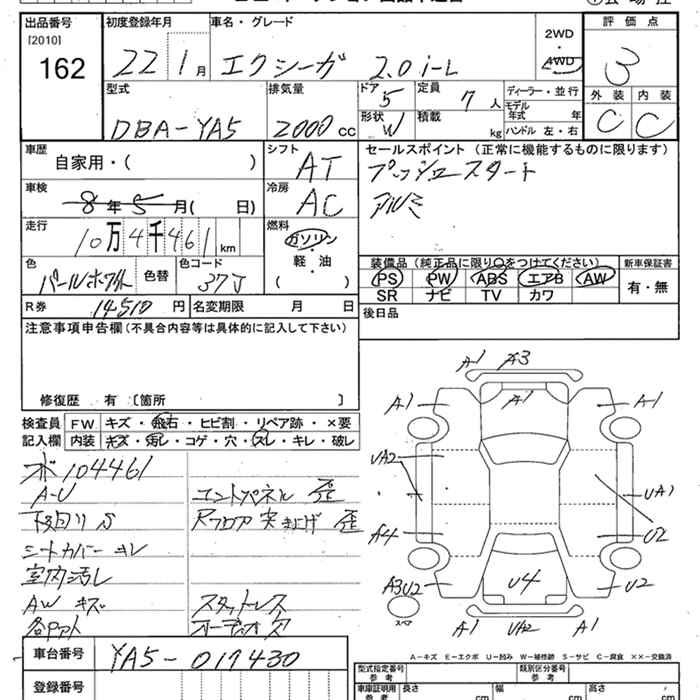 出品番号 初度登録年月 車名・グレード 評価点
[2010] 162 22 1月 エクシーガ 2.0 i-L 2WD・4WD 3
型式 排気量 ドア 5 定員 7人 ディーラー・並行 外装 内装
DBA-YA5 2000cc 形状 W 積載 kg モデル年式 年 ハンドル 左・右 C C
車歴 シフト セールスポイント (正常に機能するものに限ります)
自家用・( ) AT プッシュスタート
車検 冷房 アルミ
8年5月( 日) AC
走行 燃料
10万4千461km ガソリン・軽・油 ( )
色 色替 色コード 装備品 (純正品に限り○をつけてください) 新車保証書
パールホワイト 37J PS PW ABS エアB AW 有・無
SR ナビ TV カワ
R券 14510円 名変期限 月 日 後日品
注意事項申告欄 (不具合内容等は具体的に記入して下さい)
修復歴 有 〔箇所 〕
検査員 FW キズ・飛石・ヒビ割・リペア跡・×要
記入欄 内装 キズ・汚レ・コゲ・穴・スレ・キレ・破レ
104461
A-U エンドパネル 歪
下回りS Rフロア 突き上げ 歪
シートカバー
室内汚レ
AW キズ スタットレス
オーディオ欠
車台番号 YA5-017430
登録番号
A1 A3
A1 A1 A1
UA2 UA1
A4 U2
A3U2 U4 U2
スペア A1 UA2 A1
A-キズ E-エクボ U-凹み W-補修跡 S-サビ C-腐食 ××-交換済
型式指定番号 参考 類別区分番号 参考
車庫証明用 参考 長さ cm 幅 cm 高さ cm